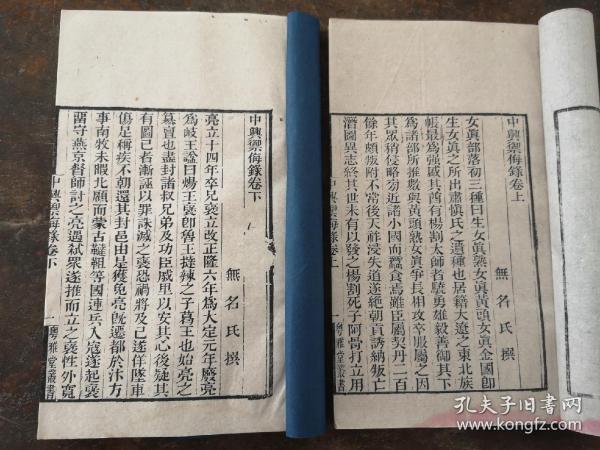 中興禦侮錄卷上
無名氏撰
女眞部落初三種曰生女眞熟女眞黃頭女眞金國卽
生女眞之所出肅愼氏之遺種也居籍大遼之東北族
帳最爲強戚其酋有楊割太師者驍勇雄毅善御其下
爲諸部所推數與黃頭熟女眞爭長相攻卒服屬之因
其眾稍侵略旁近諸小國而蠶食焉雖臣屬契丹二百
餘年頗叛附不常後天祚浸失道遂絕朝貢誘納叛亡
潛圖異志終其世未有以發之楊割死子阿骨打立用
中興禦侮錄卷上
一
粵雅堂叢書
中興禦侮錄卷下
無名氏撰
亮立十四年卒兄褒立改正隆六年爲大定元年廢亮
爲岐王諡曰煬王褒卽魯王撻辣之子葛王也始亮之
篡嘗也盡封諸叔兄弟及功臣戚里以安其心後疑其
有圖己者漸誣以罪誅滅之褒恐禍將及己遂佯墜車
傷足稱疾不朝還其封邑由是獲免亮旣遷都於汴方
事南牧未暇北顧而蒙古韃靼等國連兵入寇遂起褒
留守燕京督師討之亮遇弒眾遂推而立之褒性外寬
中興禦侮錄卷下
一
粵雅堂叢書
孔夫子旧书网
www.kongfz.com